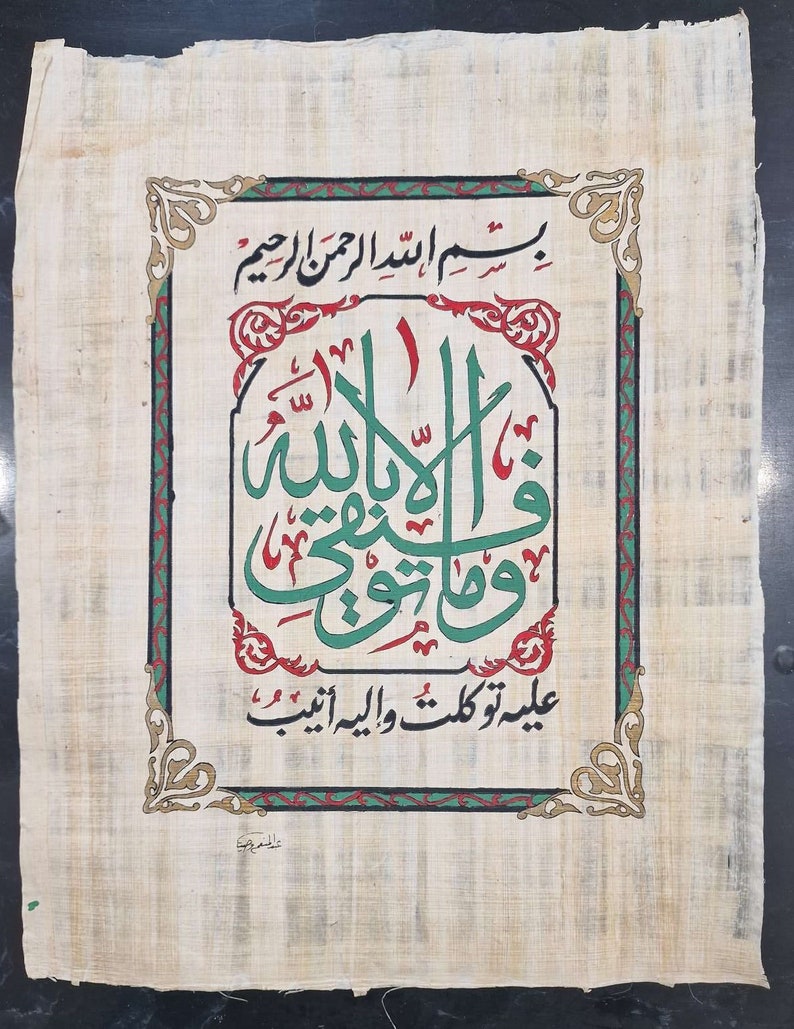 بسم الله الرحمن الرحيم
وما توفيقي إلا بالله
عليه توكلت وإليه أنيب